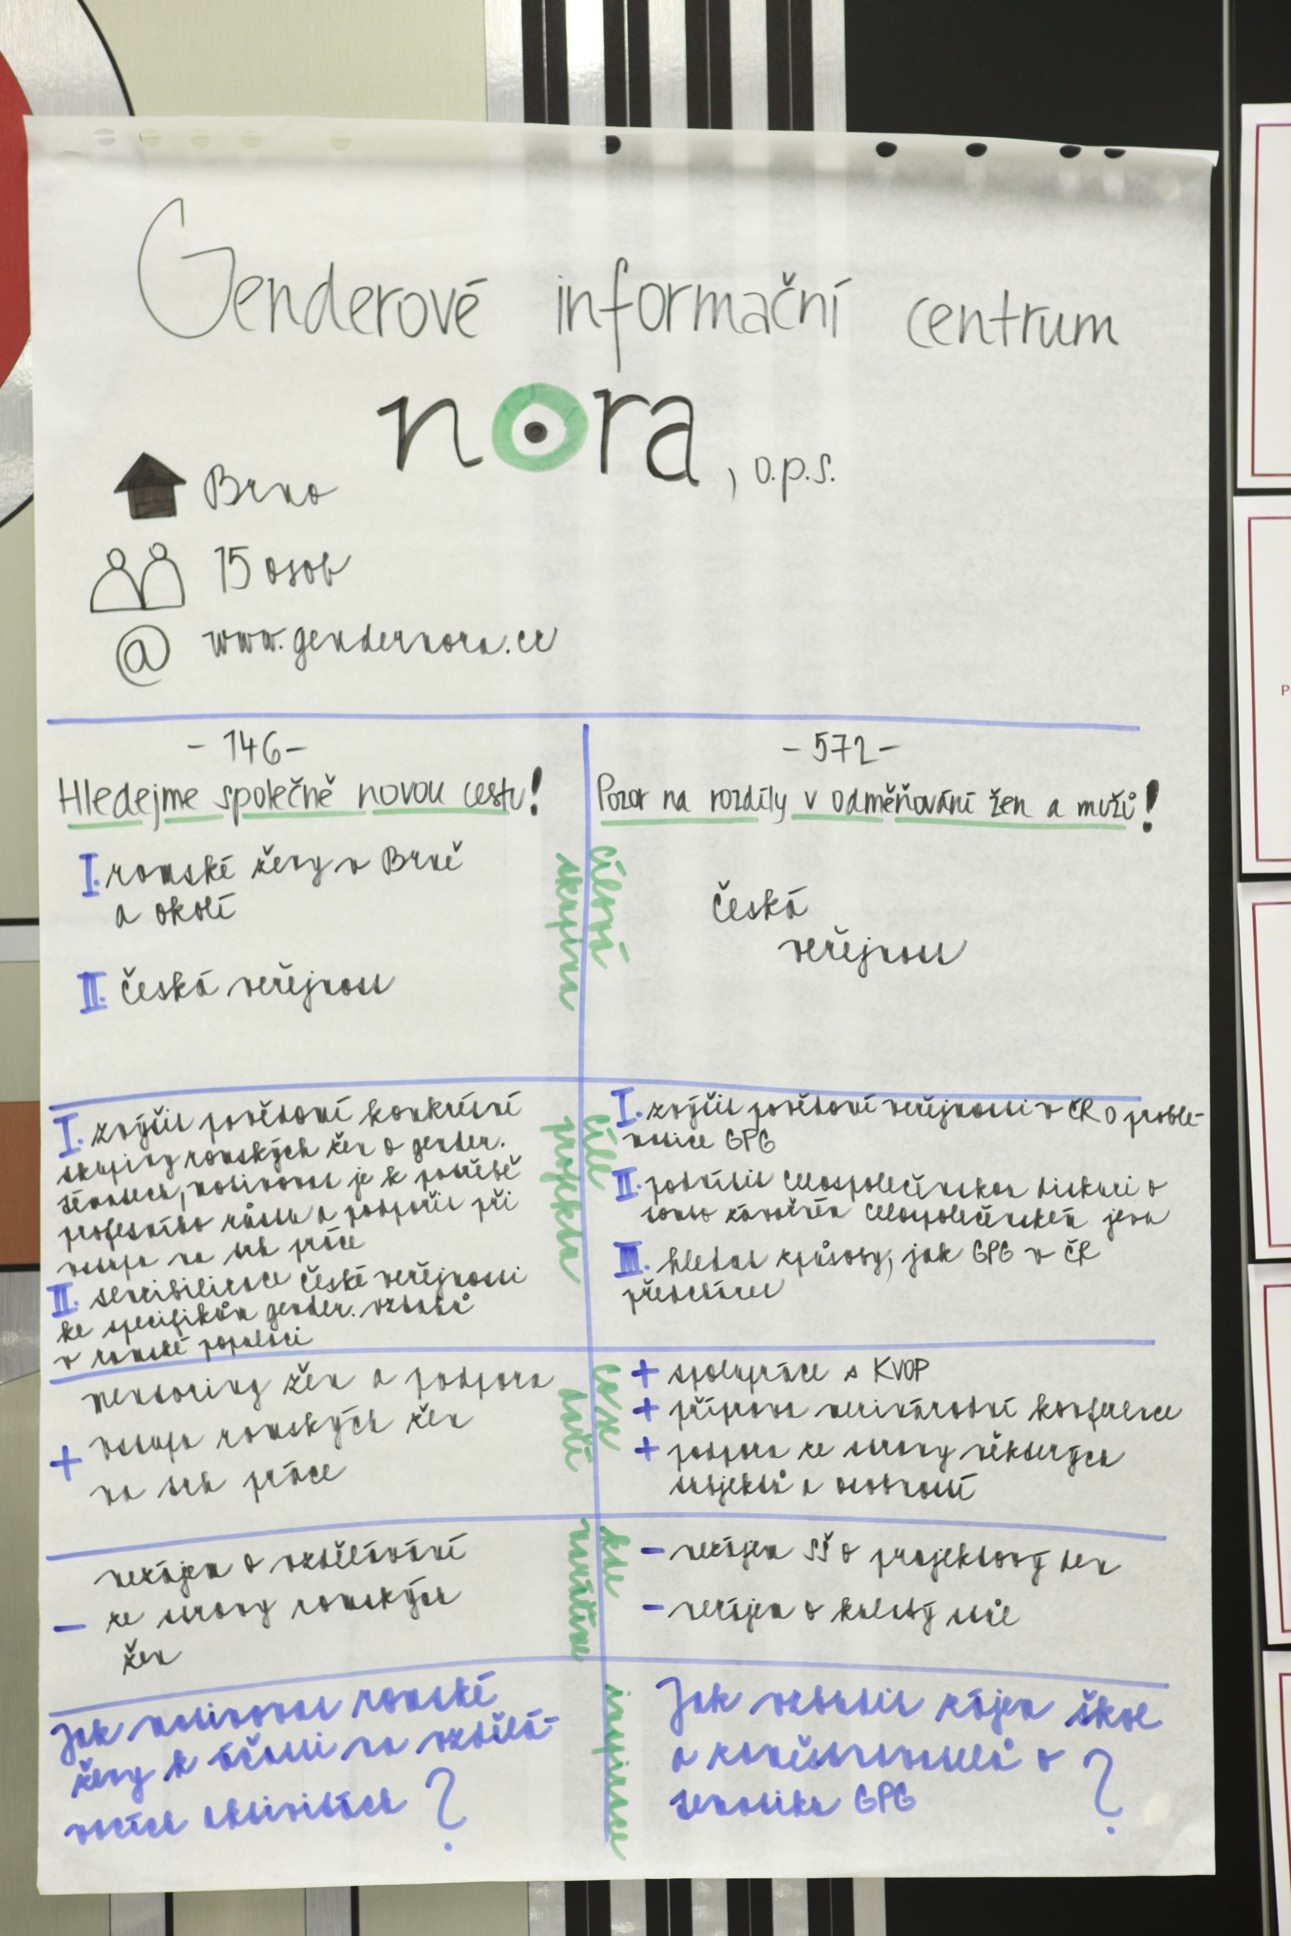 Genderové informační centrum
nora, o.p.s.
Brno
15 osob
@ www.gendernora.cz
- 146 -
Hledejme společně novou cestu!
I. romské ženy v Brně
a okolí
II. česká veřejnost
- 572 -
Pozor na rozdíly v odměňování žen a mužů!
česká
veřejnost
cílová
skupina
I. zvýšit povědomí konkrétní
skupiny romských žen o gender.
tématech, motivovat je k potřebě
profesního růstu a podpořit při
vstupu na trh práce
II. sensibilizace české veřejnosti
ke specifikům gender. vztahů
v romské populaci
cíle
projektu
I. zvýšit povědomí veřejnosti v ČR o proble-
matice GPG
II. podnítit celospolečenskou diskusi o
tomto závažném celospolečenském jevu
III. hledat způsoby, jak GPG v ČR
předcházet
mentoring žen a podpora
+ vstupu romských žen
na trh práce
co se
daří
+ spolupráce s KVOP
+ příprava mezinárodní konference
+ podpora ze strany některých
subjektů a osobností
nezájem o vzdělávání
- ze strany romských
žen
kde
narážíme
- nezájem SŠ o projektový den
- nezájem o kulatý stůl
Jak motivovat romské
ženy k účasti na vzdělá-
vacích aktivitách?
inspirace
Jak vzbudit zájem škol
a zaměstnavatelů o
tematiku GPG ?
P